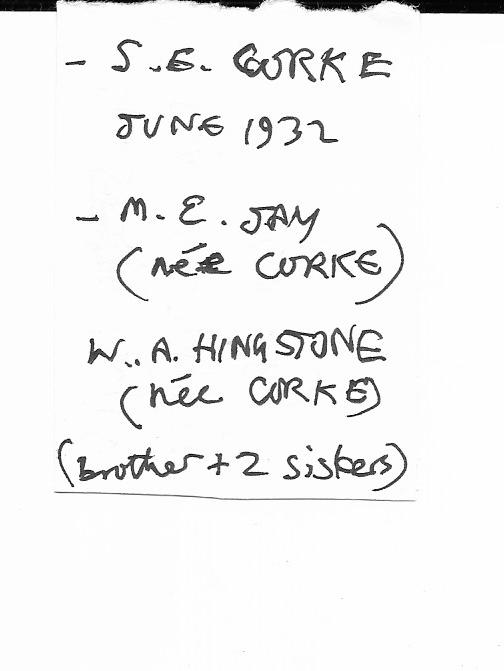 - S.E. CORKE
JUNE 1932
- M.E. JAY
(née CORKE)
W.. A. HINGSTONE
(née CORKE)
(brother + 2 sisters)